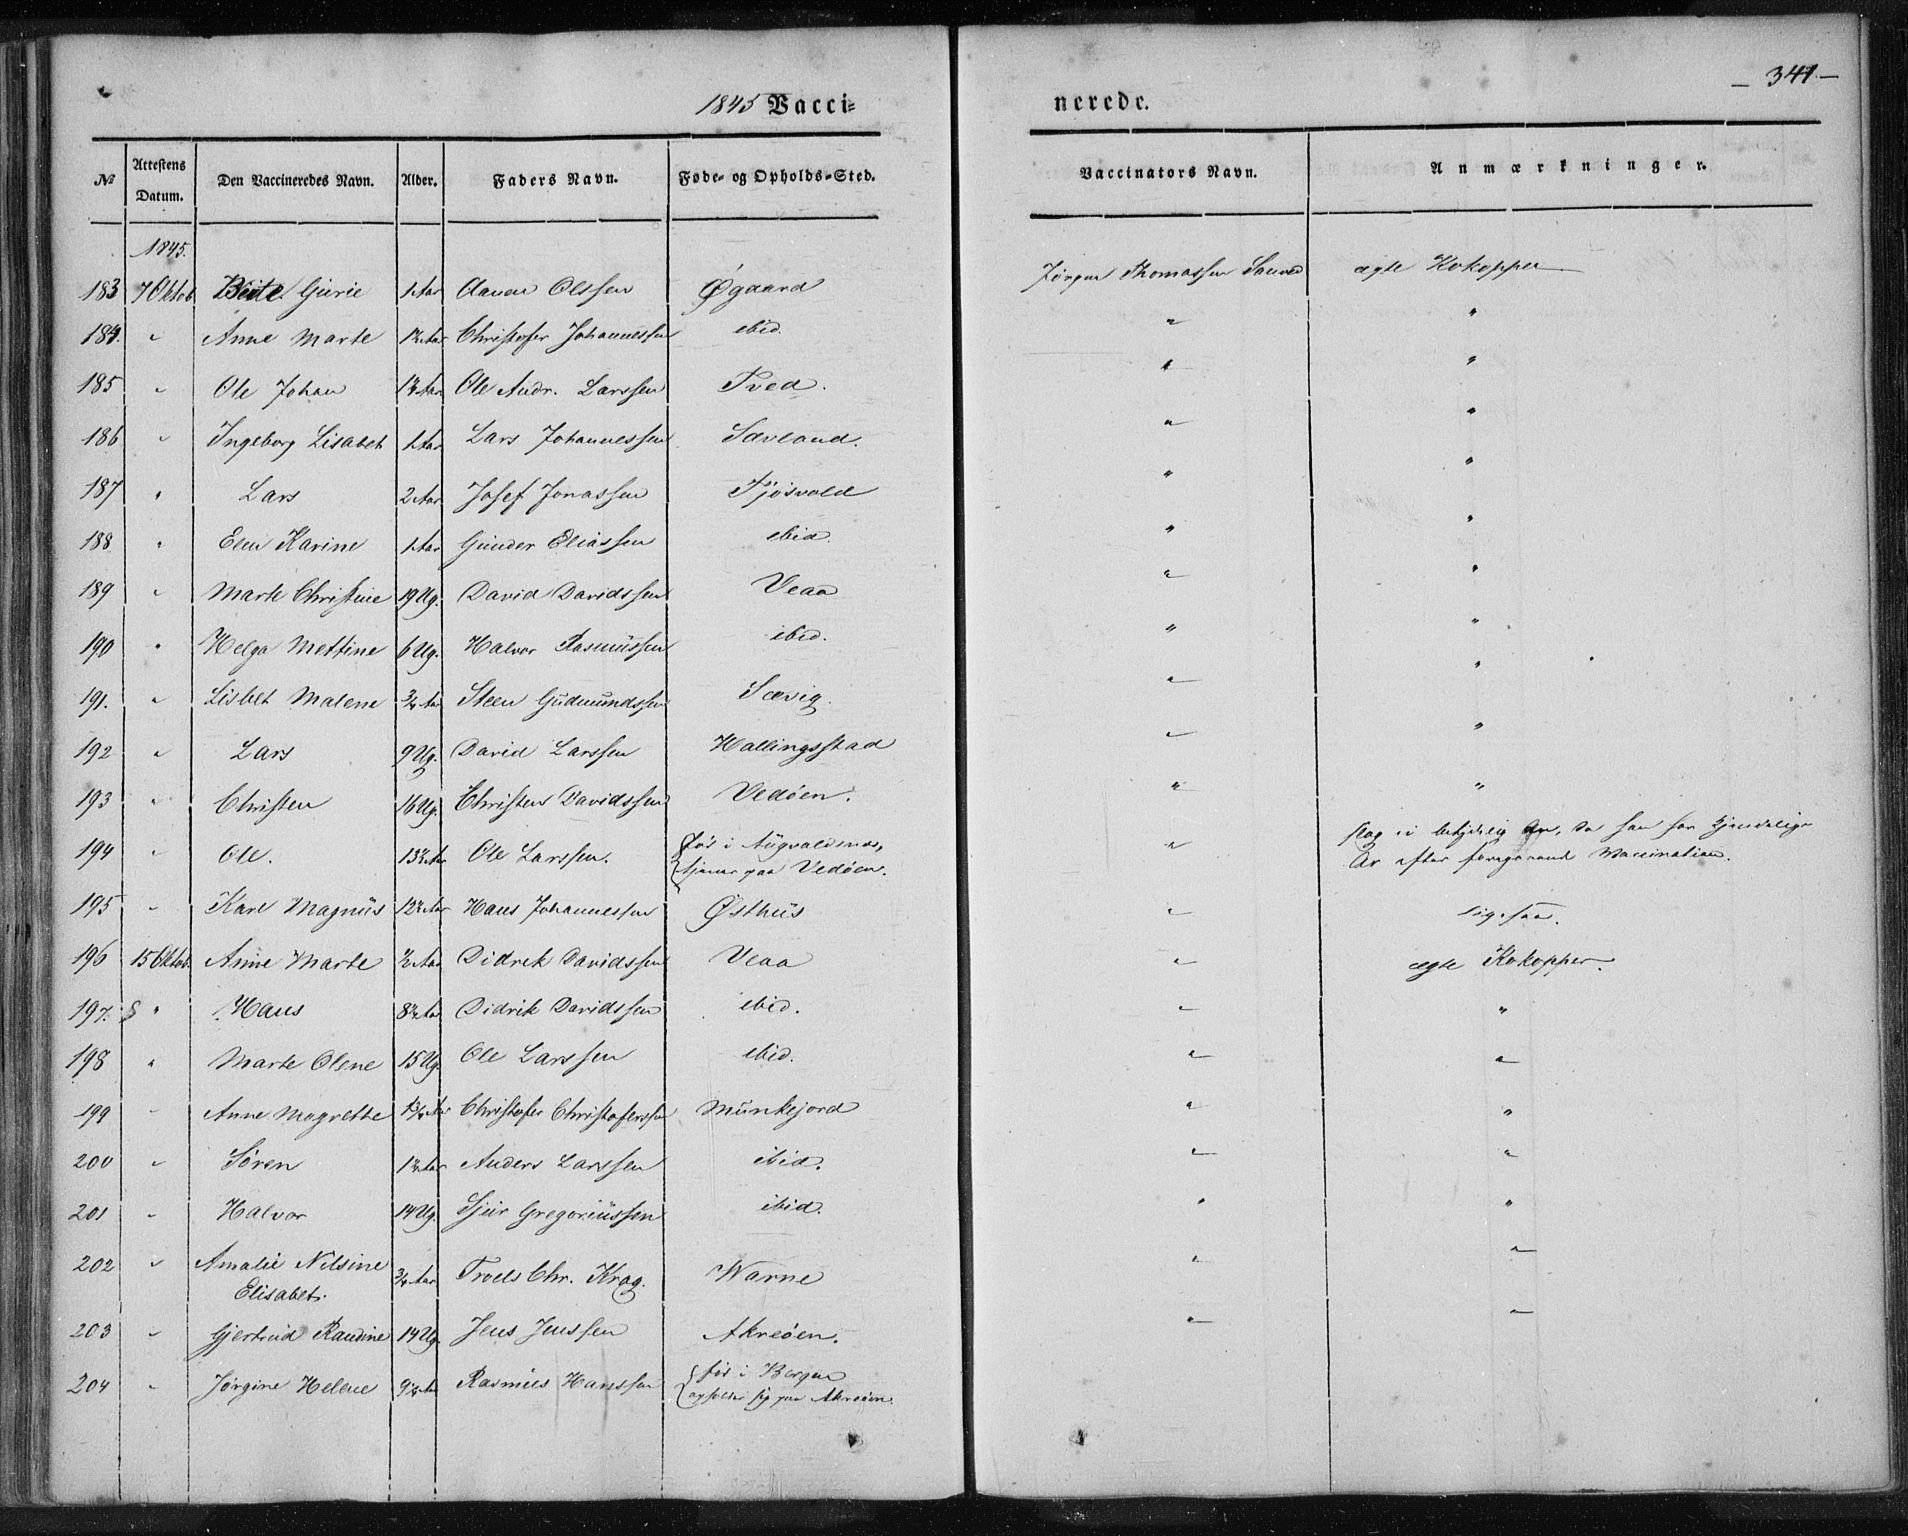 1845 Vacci-
nerede.
- 341 -
No
Attestens Datum.
Den Vaccineredes Navn.
Alder.
Faders Navn.
Føde- og Opholds-Sted.
Vaccinators Navn.
Anmærkninger.
1845.
183 7 Oktob Gurie 1 Aar Olssen Øgaard Jørgen Thomassen ægte Kokopper
184. " Anne Marte 1½ Aar Christofer Johannessen ibid. " "
185 " Ole Johan 1½ Aar Ole Andr. Larssen Tved. " "
186 " Ingeborg Lisabet 1 Aar Lars Johannessen Sævland. " "
187 " Lars 2 Aar Josef Jonassen Tjøsvold " "
188 " Elen Karine 1 Aar Gunder Eliassen ibid. " "
189 " Marte Christine 19 Ug. David Davidssen Veaa " "
190 " Helga Mettine 6 Ug. Halvor Rasmussen ibid. " "
191. " Lisbet Malene ¾ Aar Steen Gudmundssen Sævig. " "
192 " Lars 9 Ug. David Larssen Hallingsstad " "
193 " Christen 16 Ug. Christen Davidssen Vedøen. " "
194 " Ole. 13½ Aar Ole Larssen. fød i Augvaldsnæs, " da han har kjendelige
tjener paa Vedøen. Ar efter foregaaend Vaccination.
195 " Karl Magnus 12½ Aar Hans Johannessen Østhus " ligesaa.
196 15 Oktob. Anne Marte ½ Aar Didrik Davidssen Veaa " ægte Kokopper.
197. " Hans 8½ Aar Didrik Davidssen ibid. " "
198 " Marte Olene 15 Ug. Ole Larssen ibid. " "
199 " Anne Magrethe 1¾ Aar Christofer Christoferssen Munkejord " "
200 " Søren 1½ Aar Anders Larssen ibid. " "
201 " Halvor 14 Ug. Sjur Gregoriussen ibid. " "
202 " Amalie Nilsine ¾ Aar Troels Chr. Krog. Warne " "
Elisabet.
203 " Gjertrud Raudine 14 Ug. Jens Jenssen Akreøen. " "
204 " Jørgine Helene 9½ Aar Rasmus Hanssen fød i Bergen
opholder sig paa Akreøen.